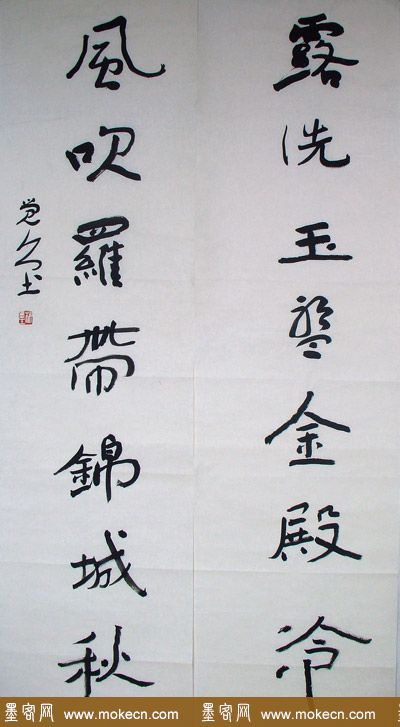 露洗玉盤金殿冷
風吹羅帶錦城秋
墨客网 www.mokecn.com 墨客网 www.mokecn.com